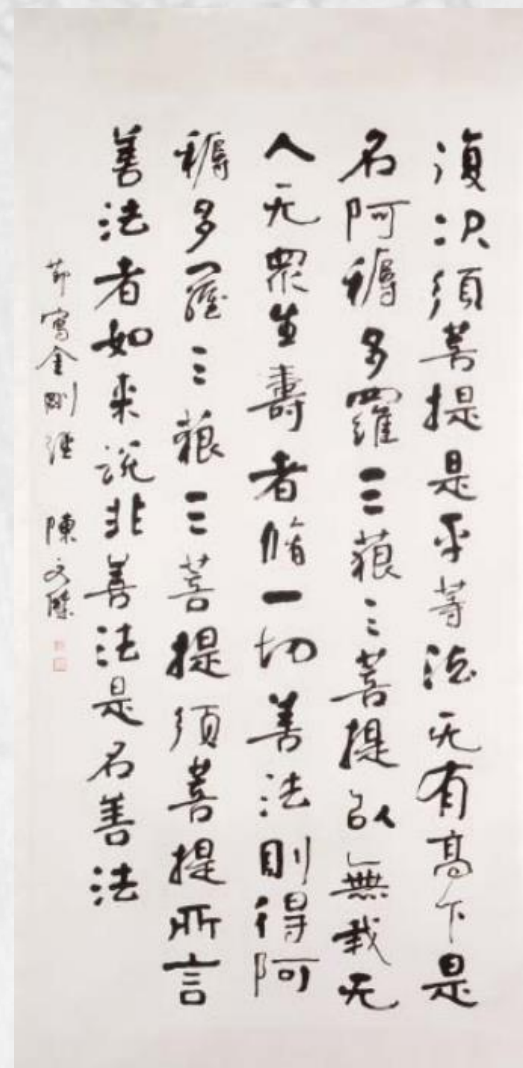 復次須菩提是平等法无有高下是
名阿耨多羅三藐三菩提以無我无
人无眾生壽者脩一切善法則得阿
耨多羅三藐三菩提須菩提所言
善法者如来說非善法是名善法
節寫金剛經 陳文傑